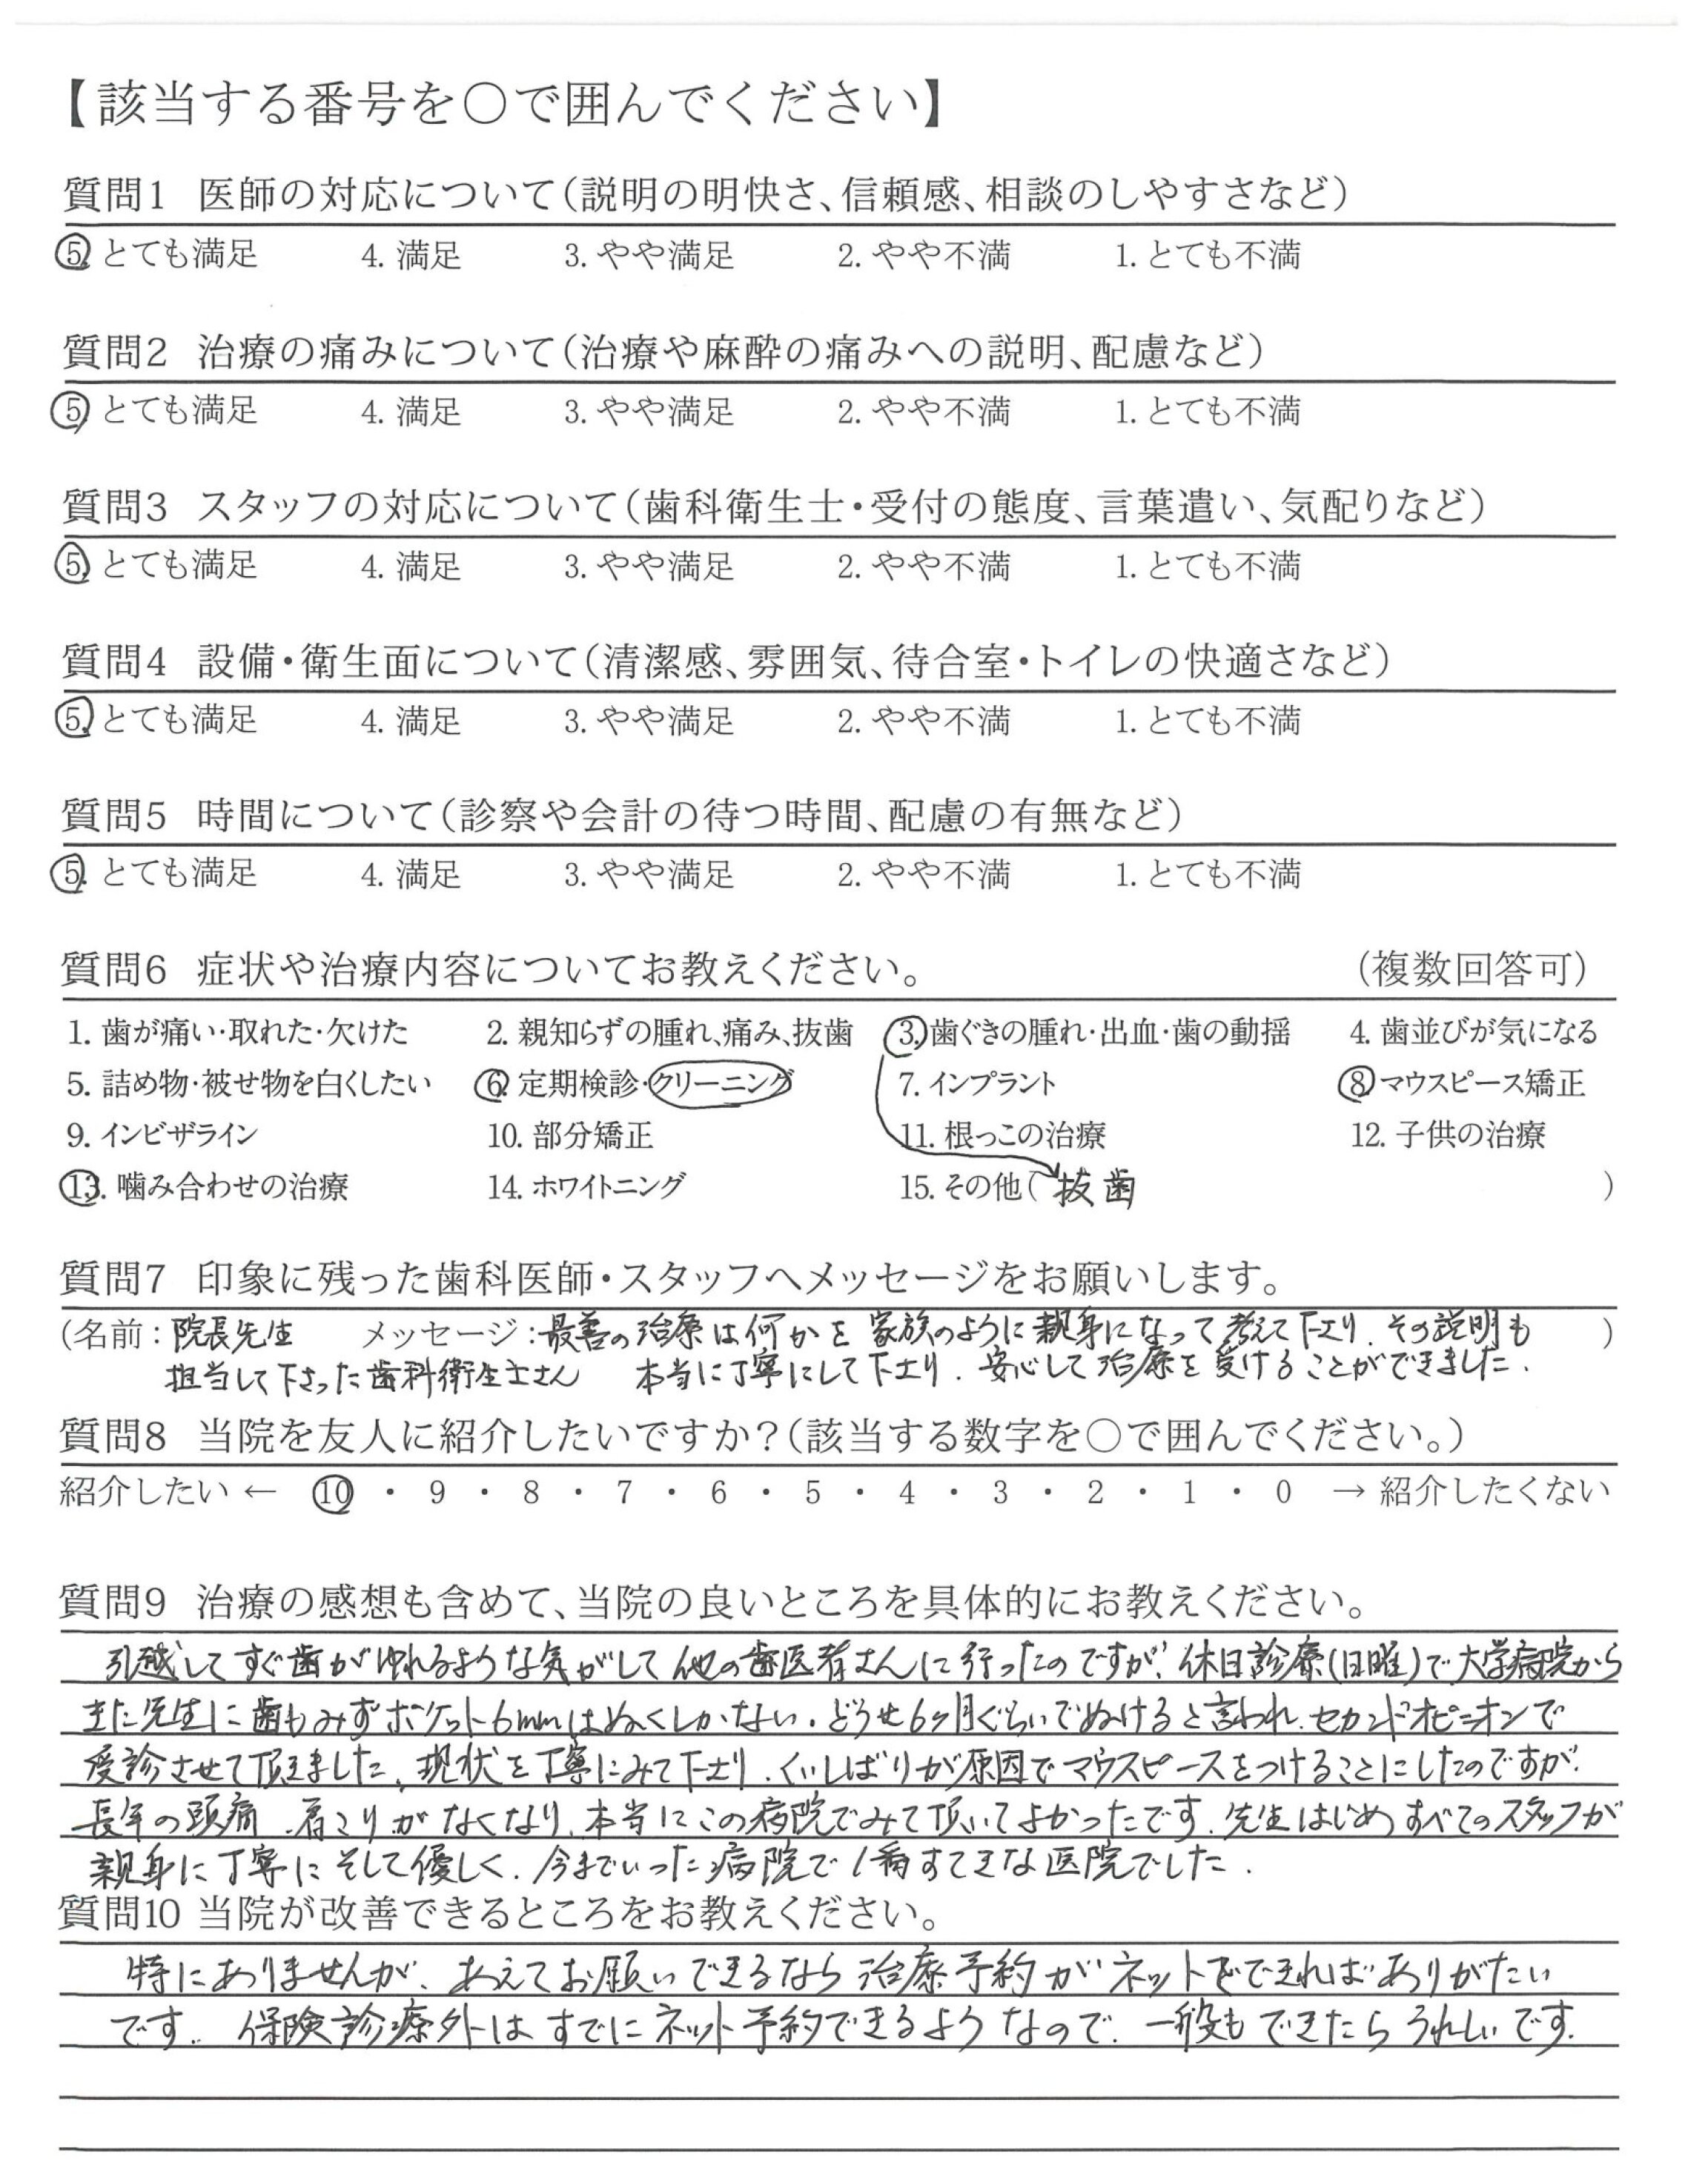 【該当する番号を○で囲んでください】
質問1 医師の対応について(説明の明快さ、信頼感、相談のしやすさなど)
5. とても満足 4. 満足 3. やや満足 2. やや不満 1. とても不満
質問2 治療の痛みについて(治療や麻酔の痛みへの説明、配慮など)
5. とても満足 4. 満足 3. やや満足 2. やや不満 1. とても不満
質問3 スタッフの対応について(歯科衛生士・受付の態度、言葉遣い、気配りなど)
5. とても満足 4. 満足 3. やや満足 2. やや不満 1. とても不満
質問4 設備・衛生面について(清潔感、雰囲気、待合室・トイレの快適さなど)
5. とても満足 4. 満足 3. やや満足 2. やや不満 1. とても不満
質問5 時間について(診察や会計の待つ時間、配慮の有無など)
5. とても満足 4. 満足 3. やや満足 2. やや不満 1. とても不満
質問6 症状や治療内容についてお教えください。 (複数回答可)
1. 歯が痛い・取れた・欠けた 2. 親知らずの腫れ、痛み、抜歯 3. 歯ぐきの腫れ・出血・歯の動揺 4. 歯並びが気になる
5. 詰め物・被せ物を白くしたい 6. 定期検診・クリーニング 7. インプラント 8. マウスピース矯正
9. インビザライン 10. 部分矯正 11. 根っこの治療 12. 子供の治療
13. 噛み合わせの治療 14. ホワイトニング 15. その他( 抜歯 )
質問7 印象に残った歯科医師・スタッフへメッセージをお願いします。
(名前:院長先生 メッセージ:最善の治療は何かを家族のように親身になって考えて下さり、その説明も )
担当して下さった歯科衛生士さん 本当に丁寧にして下さり、安心して治療を受けることができました.
質問8 当院を友人に紹介したいですか?(該当する数字を○で囲んでください。)
紹介したい ← 10 ・ 9 ・ 8 ・ 7 ・ 6 ・ 5 ・ 4 ・ 3 ・ 2 ・ 1 ・ 0 → 紹介したくない
質問9 治療の感想も含めて、当院の良いところを具体的にお教えください。
引越してすぐ歯がゆれるような気がして他の歯医者さんに行ったのですが、休日診療(日曜)で大学病院から
きた先生に歯もみずポケット6mmはぬくしかない.どうせ6ヶ月ぐらいでぬけると言われ、セカンドオピニオンで
受診させて頂きました。現状を丁寧にみて下さり、くいしばりが原因でマウスピースをつけることにしたのですが、
長年の頭痛、肩こりがなくなり、本当にこの病院でみて頂いてよかったです.先生はじめすべてのスタッフが
親身に丁寧にそして優しく、今までいった病院で1番すてきな医院でした.
質問10 当院が改善できるところをお教えください。
特にありませんが、あえてお願いできるなら治療予約がネットでできればありがたい
です. 保険診療外はすでにネット予約できるようなので、一般もできたらうれしいです.